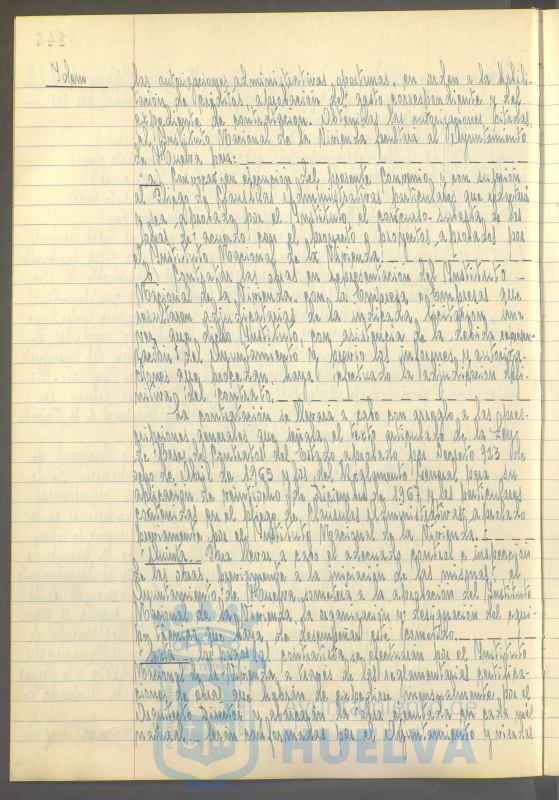 Idem
las autorizaciones administrativas oportunas, en orden a la habili-
tación de créditos, aprobación del gasto correspondiente y del
expediente de contratación. Obtenidas las autorizaciones citadas
el Instituto Nacional de la Vivienda faculta al Ayuntamiento
de Huelva para:
a) Convocar en ejecución del presente Convenio y con sujeción
al Pliego de Cláusulas Administrativas particulares que redactará
y sea aprobado por el Instituto, el concurso-subasta de las
obras de acuerdo con el proyecto o proyectos aprobados por
el Instituto Nacional de la Vivienda.
b) Contratar las obras en representación del Instituto
Nacional de la Vivienda con la Empresa o Empresas que
resultaren adjudicatarias de la indicada licitación una
vez que dicho Instituto, con asistencia de la debida represen-
tación del Ayuntamiento y previo los informes y autoriza-
ciones que procedan haya efectuado la adjudicación defi-
nitiva del contrato.
La contratación se llevará a cabo con arreglo a las pres-
cripciones generales que señala el texto articulado de la Ley
de Bases de Contratos del Estado, aprobado por Decreto 923 de
ocho de Abril de 1965 y las del Reglamento General para su
aplicación de veintiocho de Diciembre de 1967 y las particulares
contenidas en el pliego de Cláusulas Administrativas aprobado
previamente por el Instituto Nacional de la Vivienda.
Quinta.- Para llevar a cabo el adecuado control e inspección
de las obras, previamente a la iniciación de las mismas, el
Ayuntamiento de Huelva someterá a la aprobación del Instituto
Nacional de la Vivienda, la organización y designación del equi-
po técnico que haya de desempeñar este cometido.
Sexta.- Los pagos al contratista se efectuarán por el Instituto
Nacional de la Vivienda a través de las reglamentarias certifica-
ciones de obras que habrán de expedirse mensualmente por el
Arquitecto Director y abarcarán la obra ejecutada en cada mes
natural. Serán conformadas por el Ayuntamiento y visadas
Ayuntamiento de
HUELVA